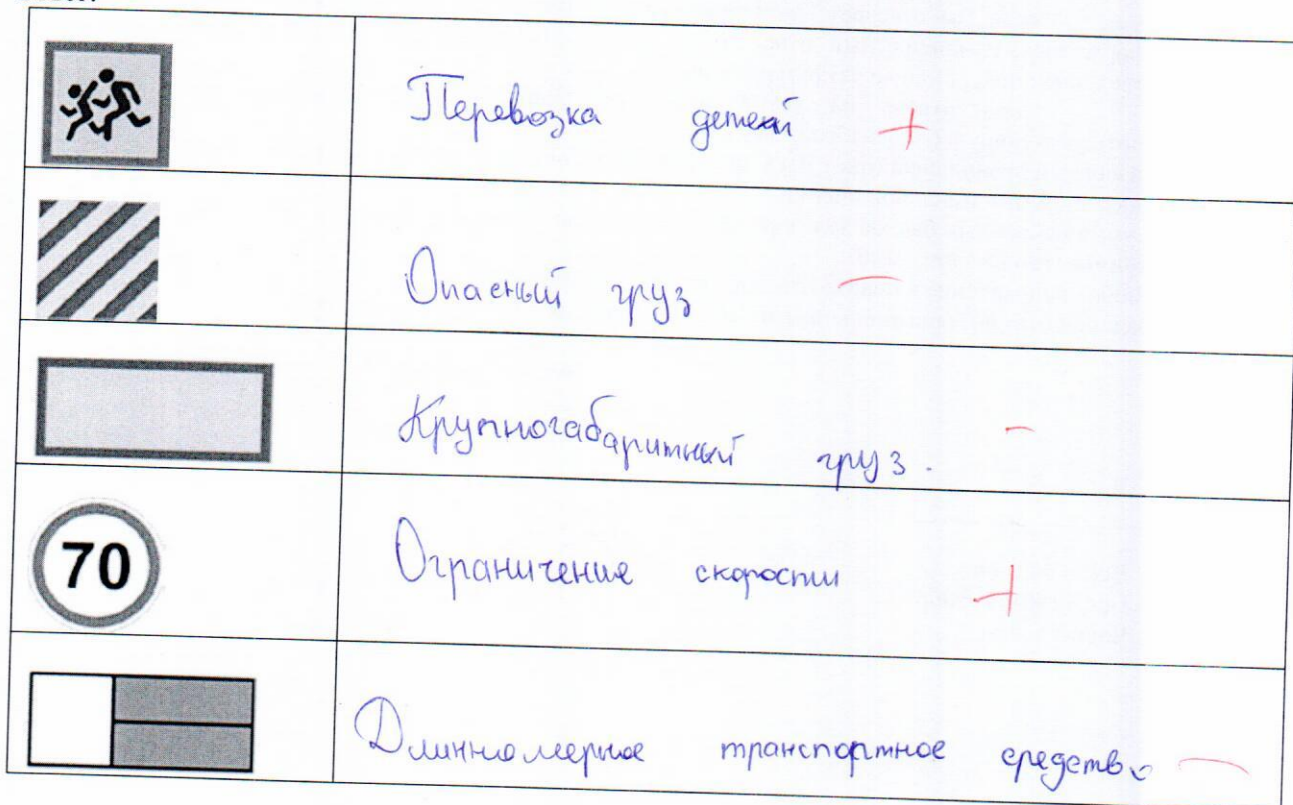 Перевозка детей +
Опасный груз –
Крупногабаритный груз. –
70
Ограничение скорости +
Длинномерное транспортное средство –